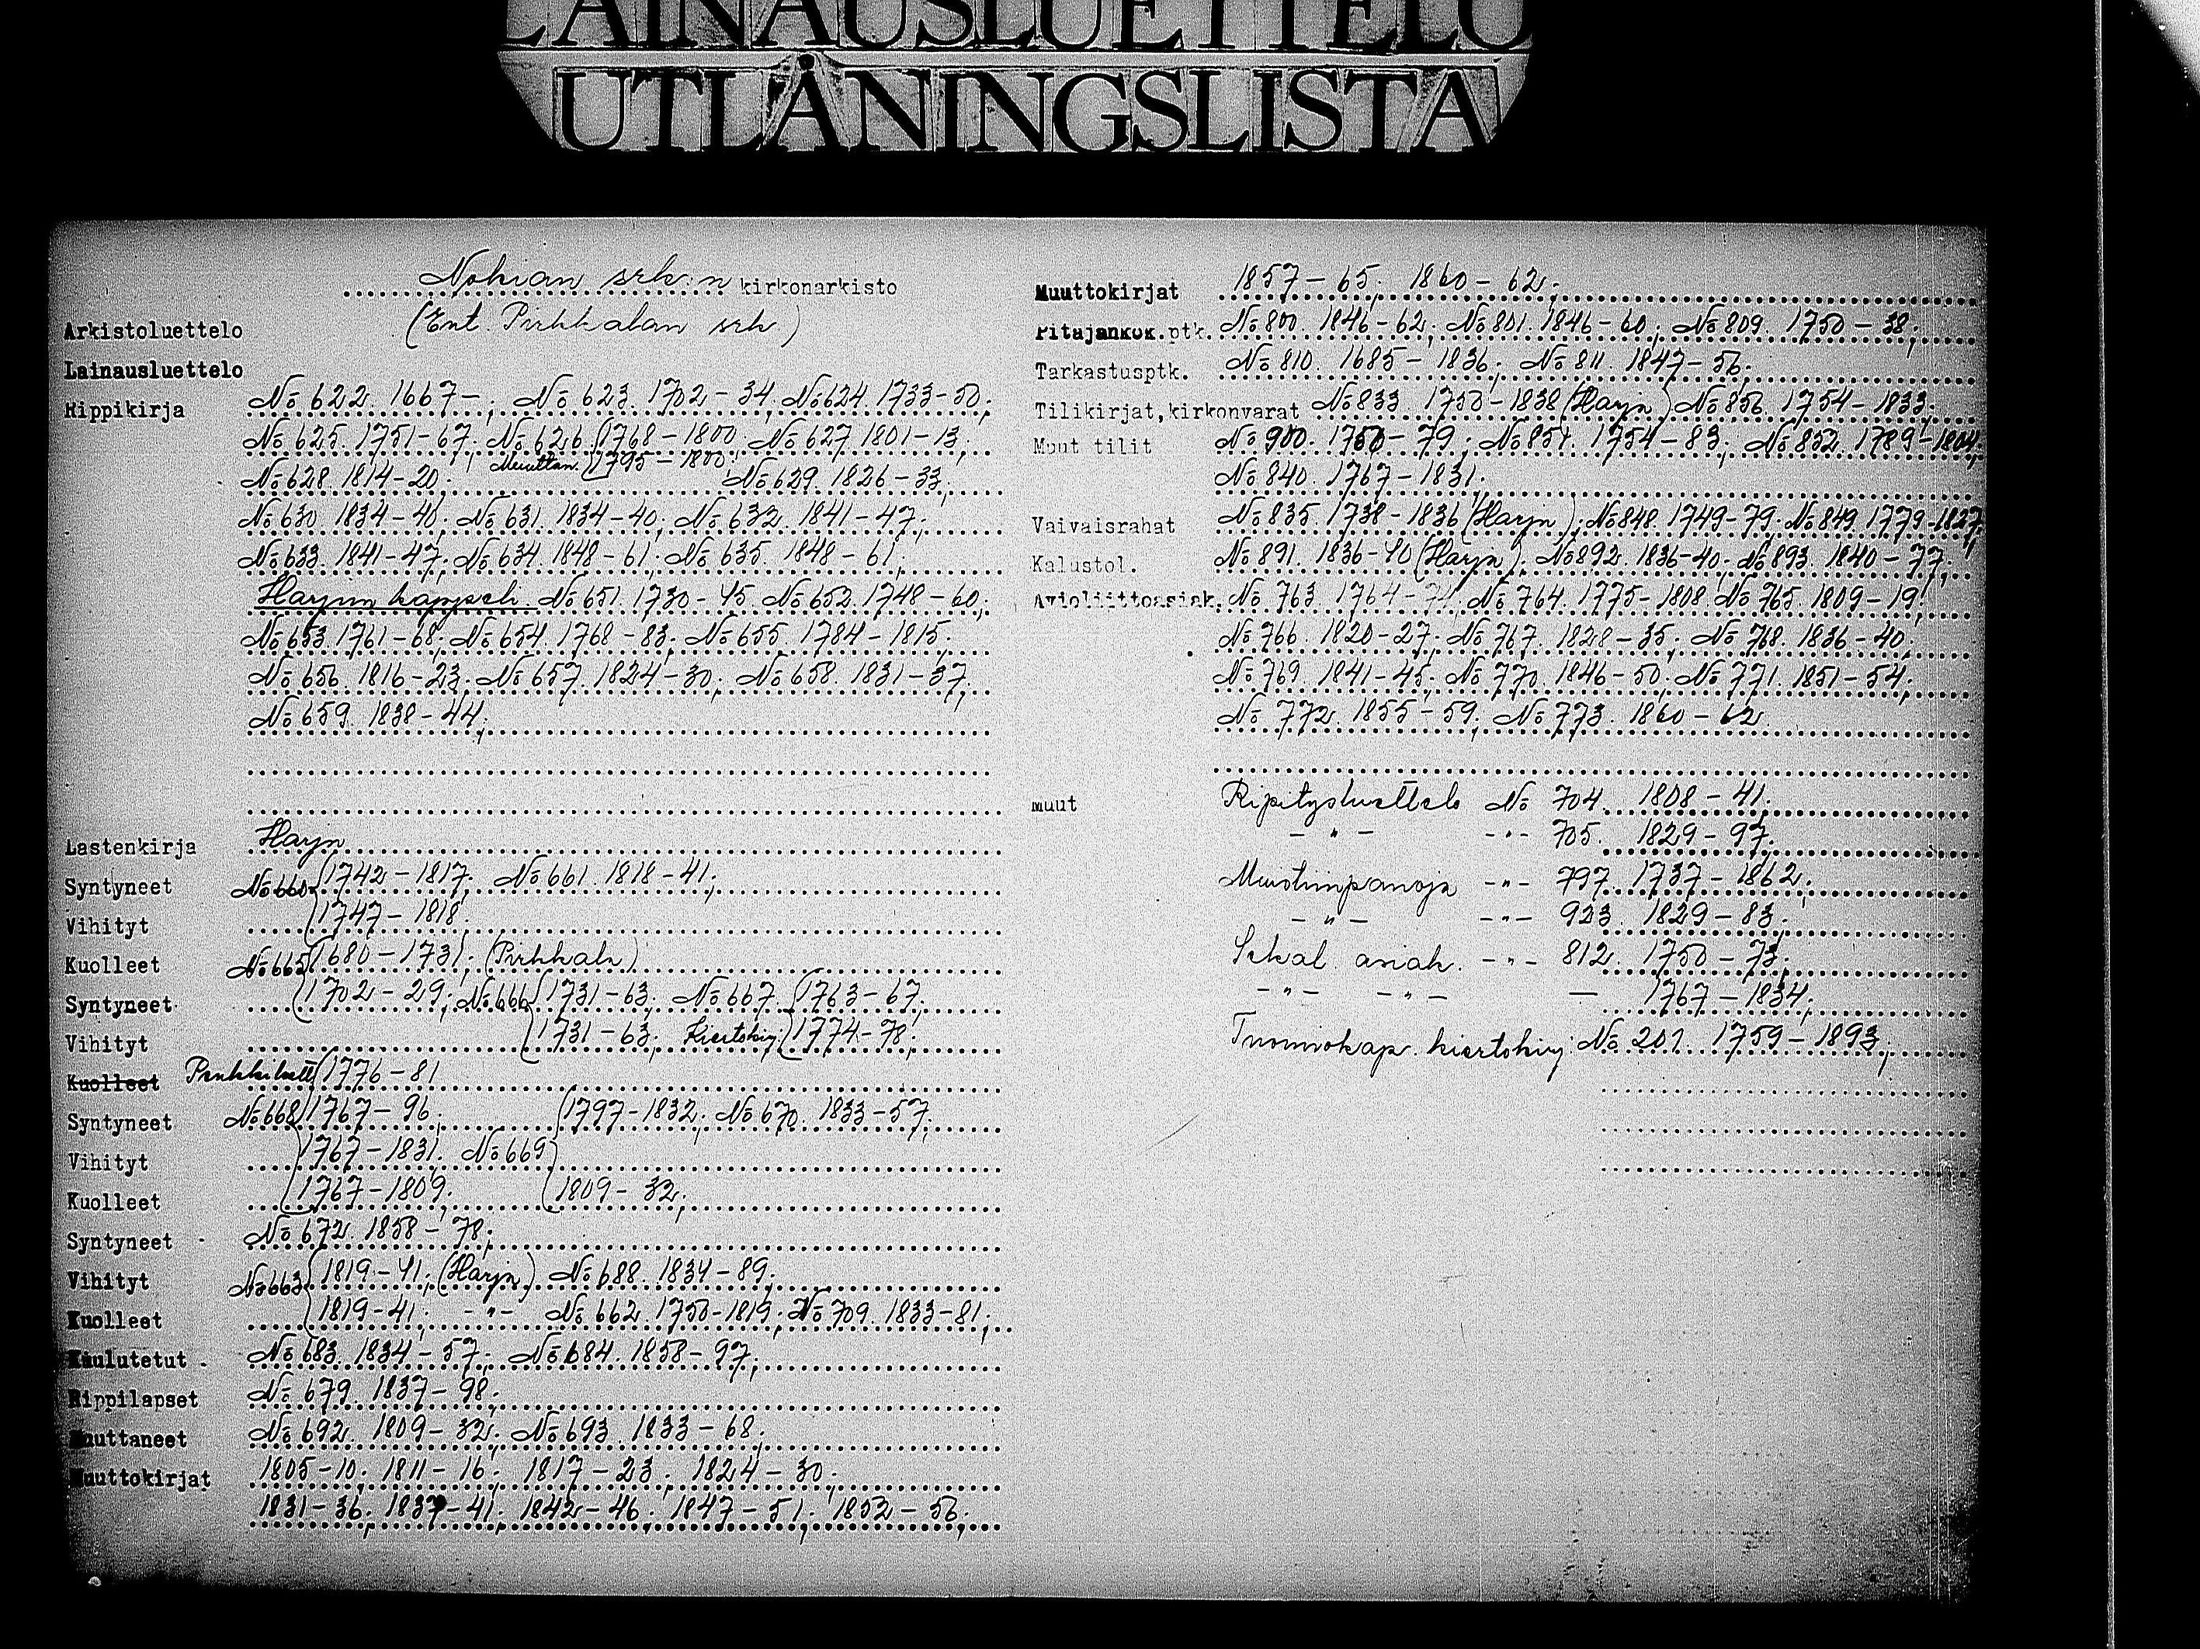 LAINAUSLUETTELO
UTLÅNINGSLISTA
Nokian srk:n kirkonarkisto
Arkistoluettelo (Ent. Pirkkalan srk.)
Lainausluettelo
Rippikirja No 622. 1667-; No 623. 1702-34; No 624. 1733-50;
No 625. 1751-67; No 626. 1768-1800; No 627. 1801-13;
Muuttan. 1795-1800;
No 628. 1814-20; No 629. 1826-33;
No 630. 1834-40; No 631. 1834-40; No 632. 1841-47;
No 633. 1841-47; No 634. 1848-61; No 635. 1848-61;
Harjun kappeli No 651. 1730-45. No 652. 1748-60;
No 653. 1761-68; No 654. 1768-83; No 655. 1784-1815;
No 656. 1816-23; No 657. 1824-30; No 658. 1831-37;
No 659. 1838-44;
Lastenkirja Harjn
Syntyneet No 660 1742-1817; No 661. 1818-41;
Vihityt 1747-1818.
Kuolleet No 665 1680-1731; (Pirkkala)
Syntyneet 1702-29; No 666 1731-63; No 667. 1763-67;
Vihityt 1731-63; Kiertokirj. 1774-78;
Kuolleet Penkkiluett 1776-81
Syntyneet No 668 1767-96; 1797-1832; No 670. 1833-57;
Vihityt 1767-1831. No 669
Kuolleet 1767-1809; 1809-32;
Syntyneet No 672. 1858-78;
Vihityt No 663 1819-41; (Harjn) No 688. 1834-89;
Kuolleet 1819-41; -"- No 662. 1750-1819; No 709. 1833-81;
Kuulutetut No 683. 1834-57; No 684. 1858-97;
Rippilapset No 679. 1837-98;
Muuttaneet No 692. 1809-32; No 693. 1833-68;
Muuttokirjat 1805-10; 1811-16; 1817-23; 1824-30;
1831-36; 1837-41; 1842-46; 1847-51; 1852-56;
Muuttokirjat 1857-65; 1860-62;
Pitäjänkok.ptk. No 800. 1846-62; No 801. 1846-60; No 809. 1750-38;
Tarkastusptk. No 810. 1685-1836; No 811. 1847-56;
Tilikirjat,kirkonvarat No 833. 1750-1838 (Harjn) No 856. 1754-1833;
Muut tilit No 900. 1750-79; No 851. 1754-83; No 852. 1789-1804;
No 840. 1767-1831;
Vaivaisrahat No 835. 1738-1836 (Harjn); No 848. 1749-79; No 849. 1779-1827;
Kalustol. No 891. 1836-40 (Harjn); No 892. 1836-40; No 893. 1840-77;
Avioliittoasiak. No 763. 1764-74; No 764. 1775-1808; No 765. 1809-19;
No 766. 1820-27; No 767. 1828-35; No 768. 1836-40;
No 769. 1841-45; No 770. 1846-50; No 771. 1851-54;
No 772. 1855-59; No 773. 1860-62.
muut Ripitysluettelo No 704. 1808-41.
-"- -"- 705. 1829-97.
Muistiinpanoja -"- 797. 1737-1862;
-"- -"- 923. 1829-83.
Sekal. asiak. -"- 812. 1750-73;
-"- -"- - 1767-1834;
Tuomiokap. kiertokirj. No 201. 1759-1893;